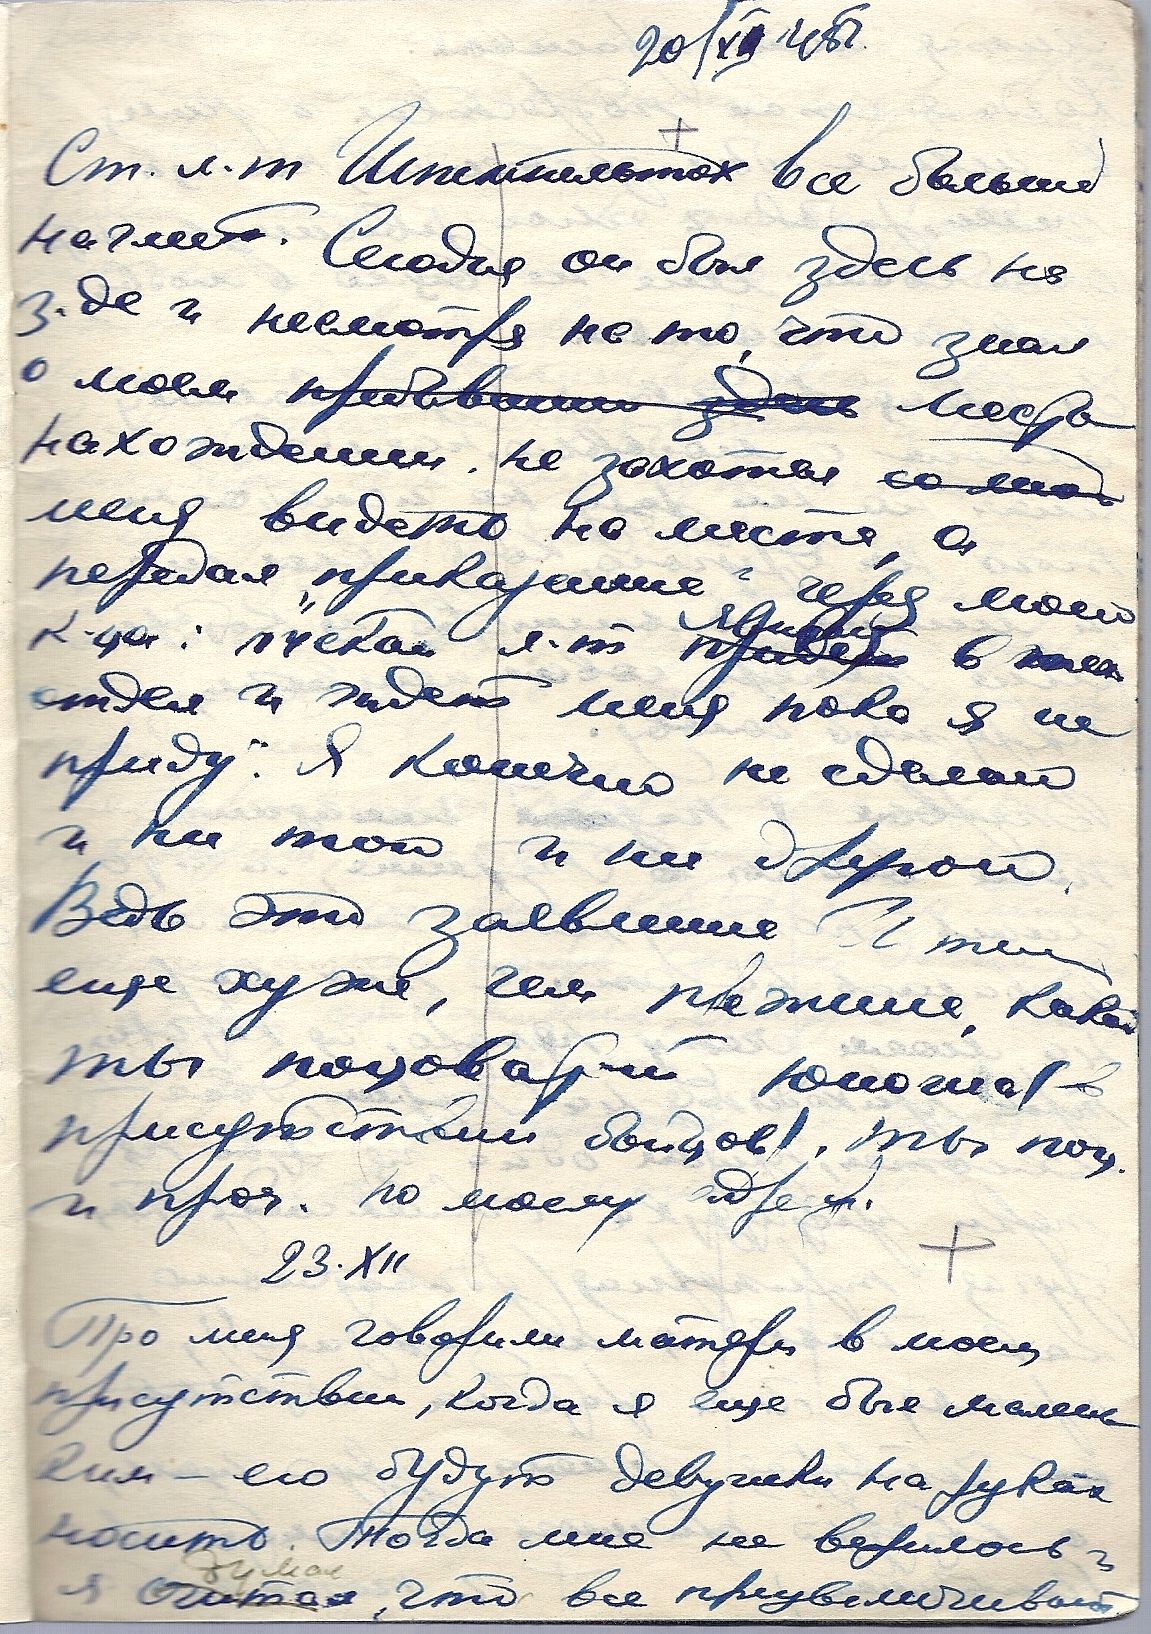 20/XII 45г.
Ст. л-т все больше
наглеет. Сегодня он был здесь на
з-де и несмотря на то, что знал
о моем пребывании здесь место
нахождении. не захотел со мной
меня видеть на месте, а
передал "приказание" через моего
к-ца: "пускай л-т явится придет в
отдел и ждет меня пока я не
приду". Я конечно не сделал
и ни той и ни другой.
Ведь это заявление
еще хуже, чем режние, какой
ты поцоватый юноша (в
присутствии бойцов), ты поц.
и проч. по моему адресу.
23.XII
Про меня говорили матери в моем
присутствии, когда я еще был малень
ким – его будут девушки на руках
носить. Тогда мне не верилось и
думал
я считал, что все преувеличивают